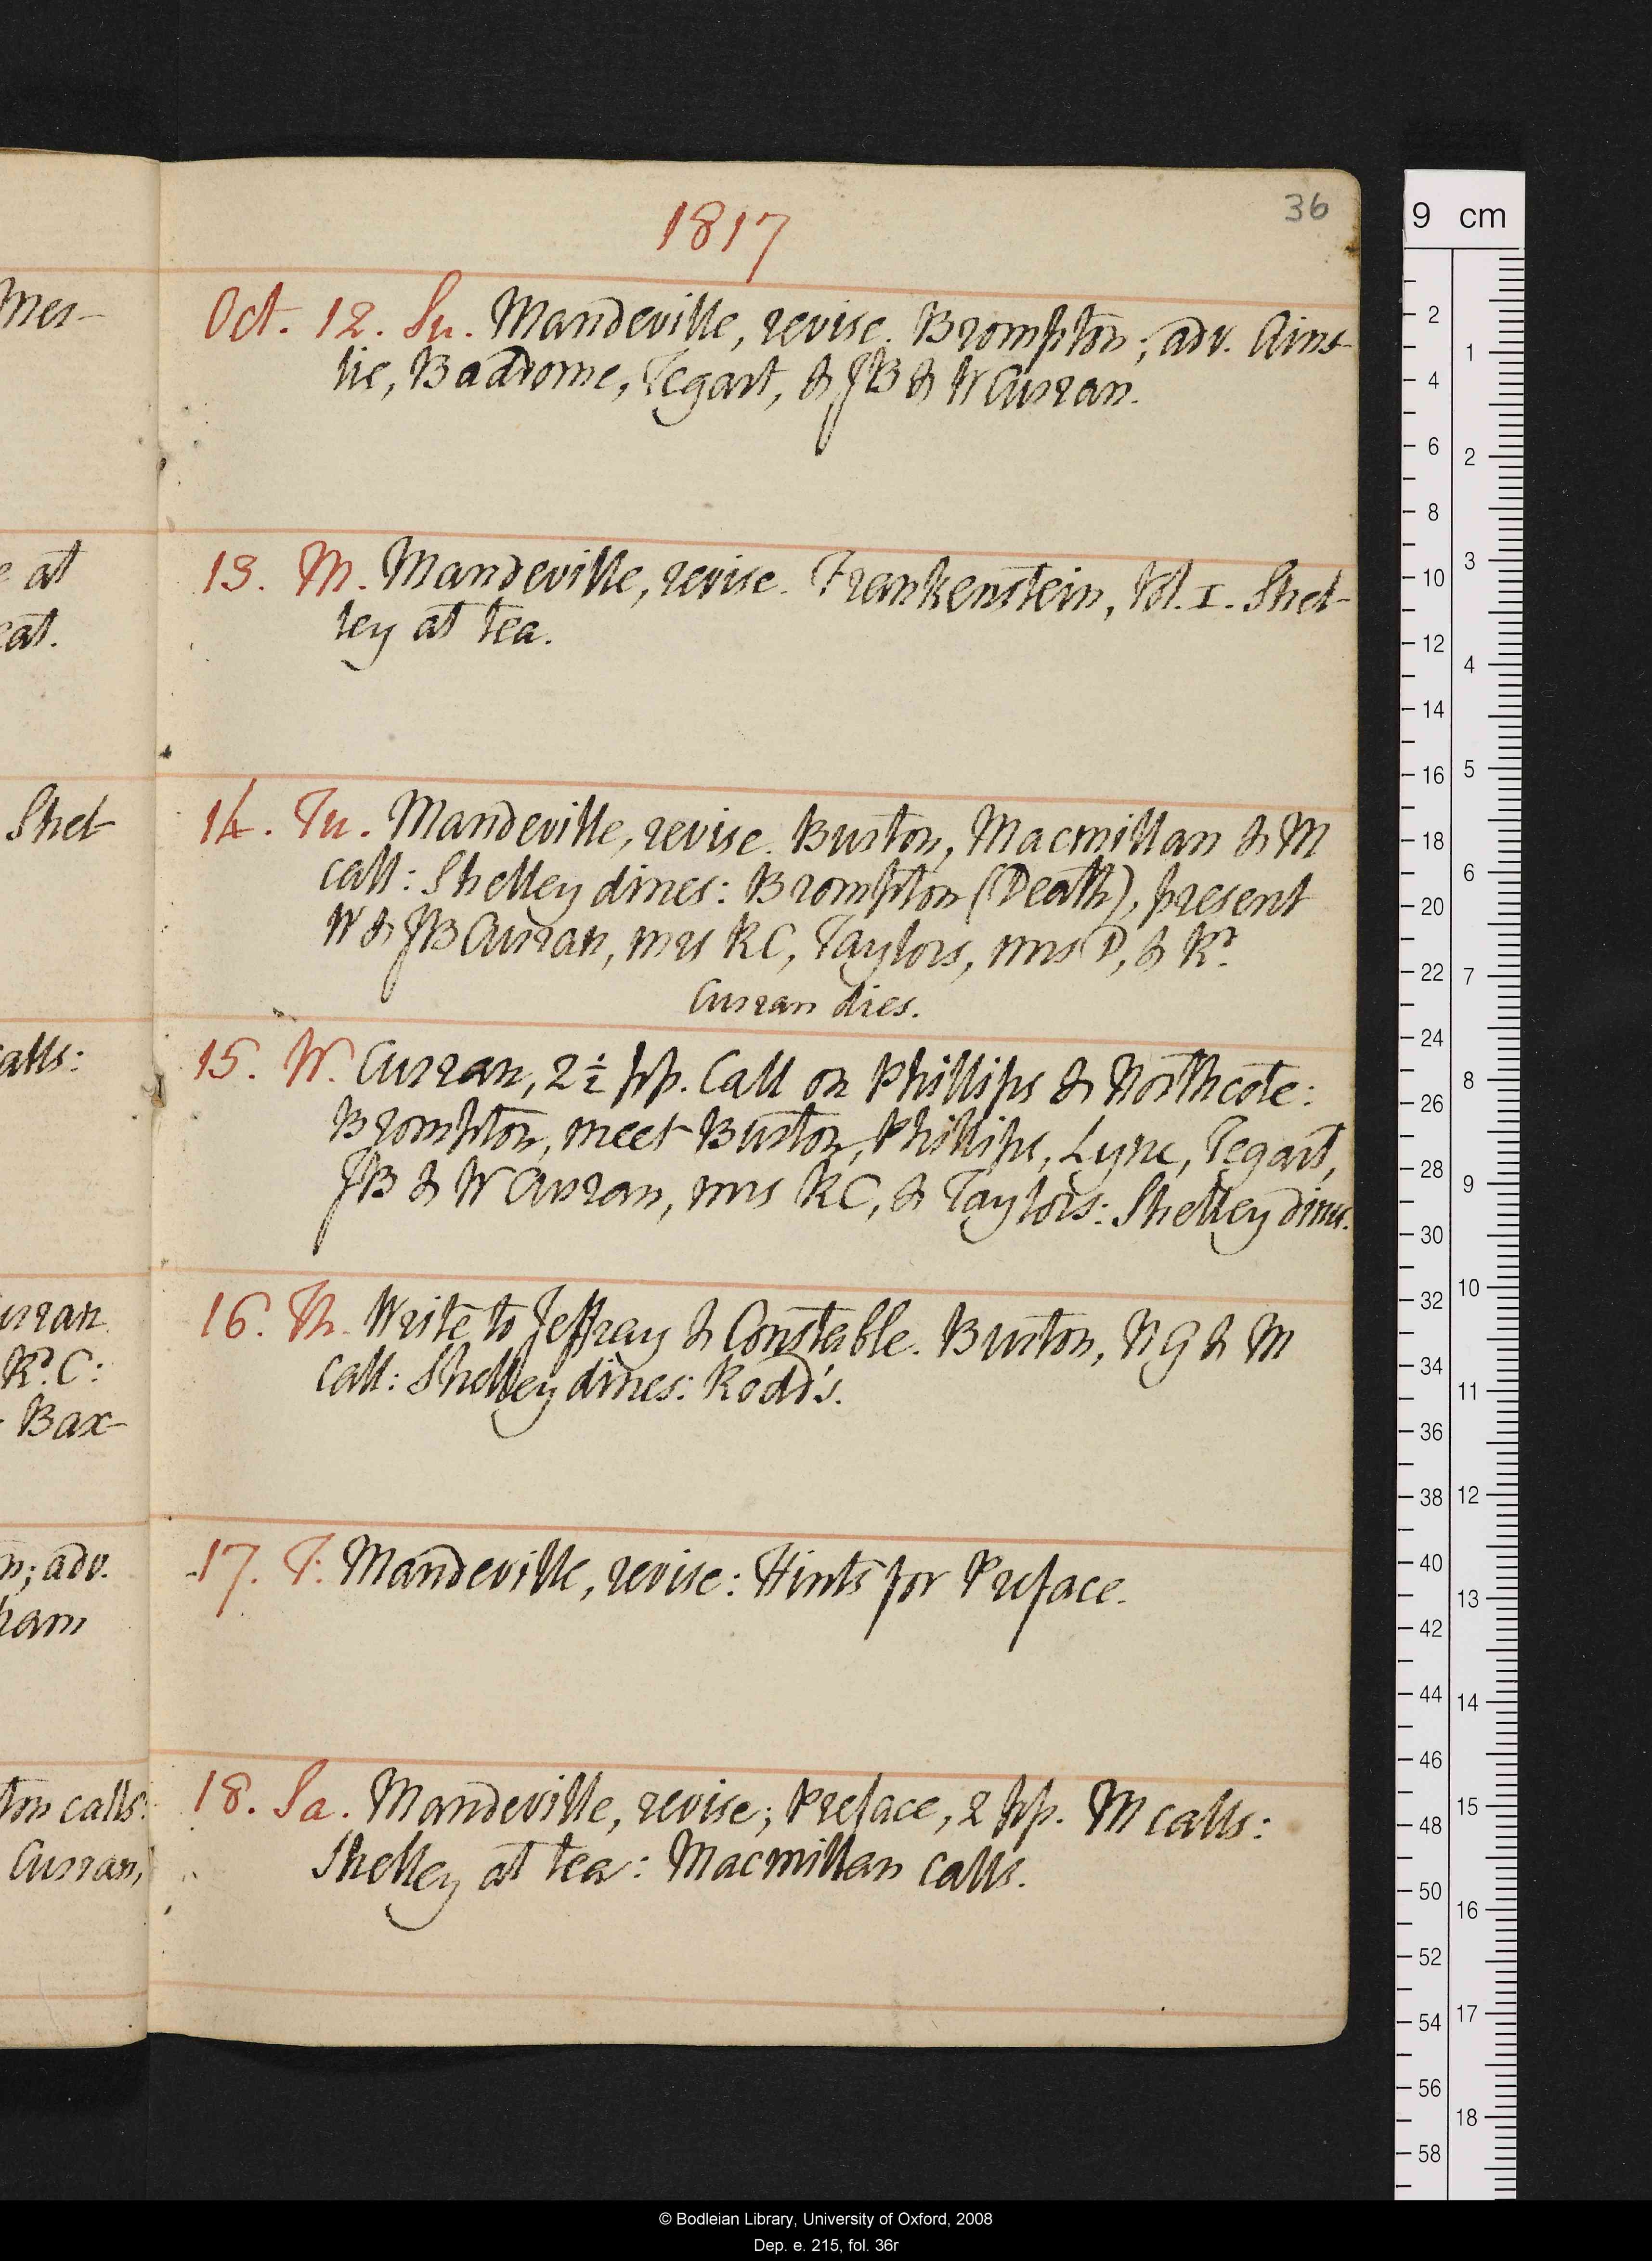 36
1817
Oct. 12. Su. Mandeville, revise. Brompton; adv. Ains-
lie, Badome, Tegart, & JB & W Curran.
13. M. Mandeville, revise. Frankenstein, Vol. I. Shel-
ley at tea.
14. Tu. Mandeville, revise. Burton, Macmillan & M
call: Shelley dines: Brompton (Death), present
W & JB Curran, mrs RC, Taylors, mrs P, & Rd.
Curran dies.
15. W. Curran, 2 1/2 pp. Call on Phillips & Northcote:
Brompton, meet Burton, Phillips, Lyne, Tegart,
JB & W Curran, mrs RC, & Taylors: Shelley dines.
16. Th. Write to Jeffray & Constable. Burton, N G & M
call: Shelley dines: Rodd's.
17. F. Mandeville, revise: Hints for Preface.
18. Sa. Mandeville, revise; Preface, 2 pp. M calls:
Shelley at tea: Macmillan calls.
Mes-
e at
eat.
Shel-
calls:
urran.
Rd. C:
Bax-
n; adv.
ham
ton calls:
Curran,
9 cm
2
4
6
8
10
12
14
16
18
20
22
24
26
28
30
32
34
36
38
40
42
44
46
48
50
52
54
56
58
1
2
3
4
5
6
7
8
9
10
11
12
13
14
15
16
17
18
© Bodleian Library, University of Oxford, 2008
Dep. e. 215, fol. 36r